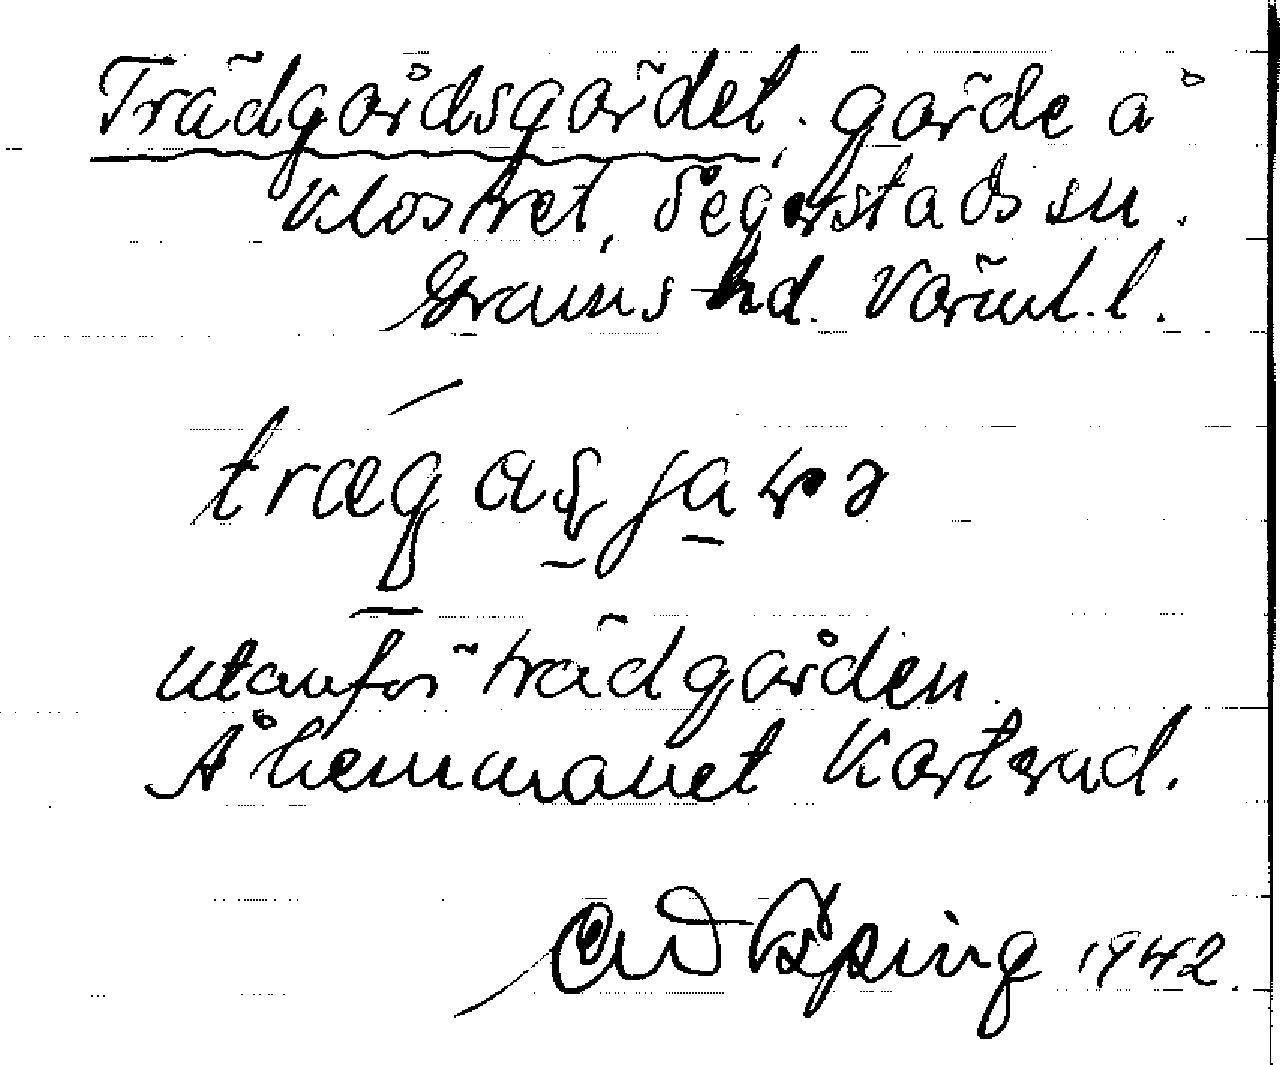 Trädgårdsgärdet, gärde å
Klostret, Segerstads sn.
Grums hd. Värml. l.
trægaṣjaɽə
Utanför trädgården
Å hemmanet Karterud.
1942